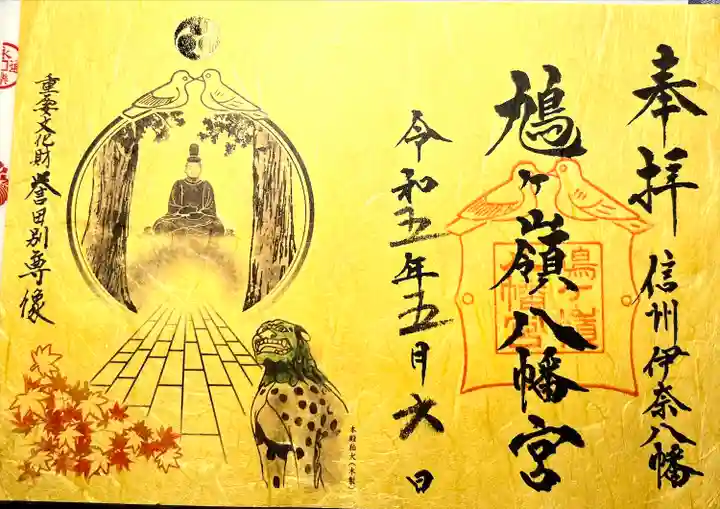 奉拝
信州伊奈八幡
鳩ヶ嶺八幡宮
令和五年五月六日
重要文化財 誉田別尊像
本殿狛犬(木製)